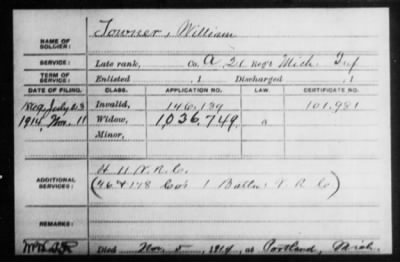 NAME OF SOLDIER: Towner, William
SERVICE: Late rank, Co. A, 21 Reg't Mich. Inf
TERM OF SERVICE: Enlisted , 1 Discharged , 1
DATE OF FILING. CLASS. APPLICATION NO. LAW. CERTIFICATE NO.
July 23 Invalid, 146,139 101,981
1914, Nov. 11 Widow, 1,036,749
Minor,
ADDITIONAL SERVICES: H V.R.C.
(46 & 178 Co's 1 Battn V.R.C.)
REMARKS:
Died Nov. 5, 1914, at Portland, Mich.